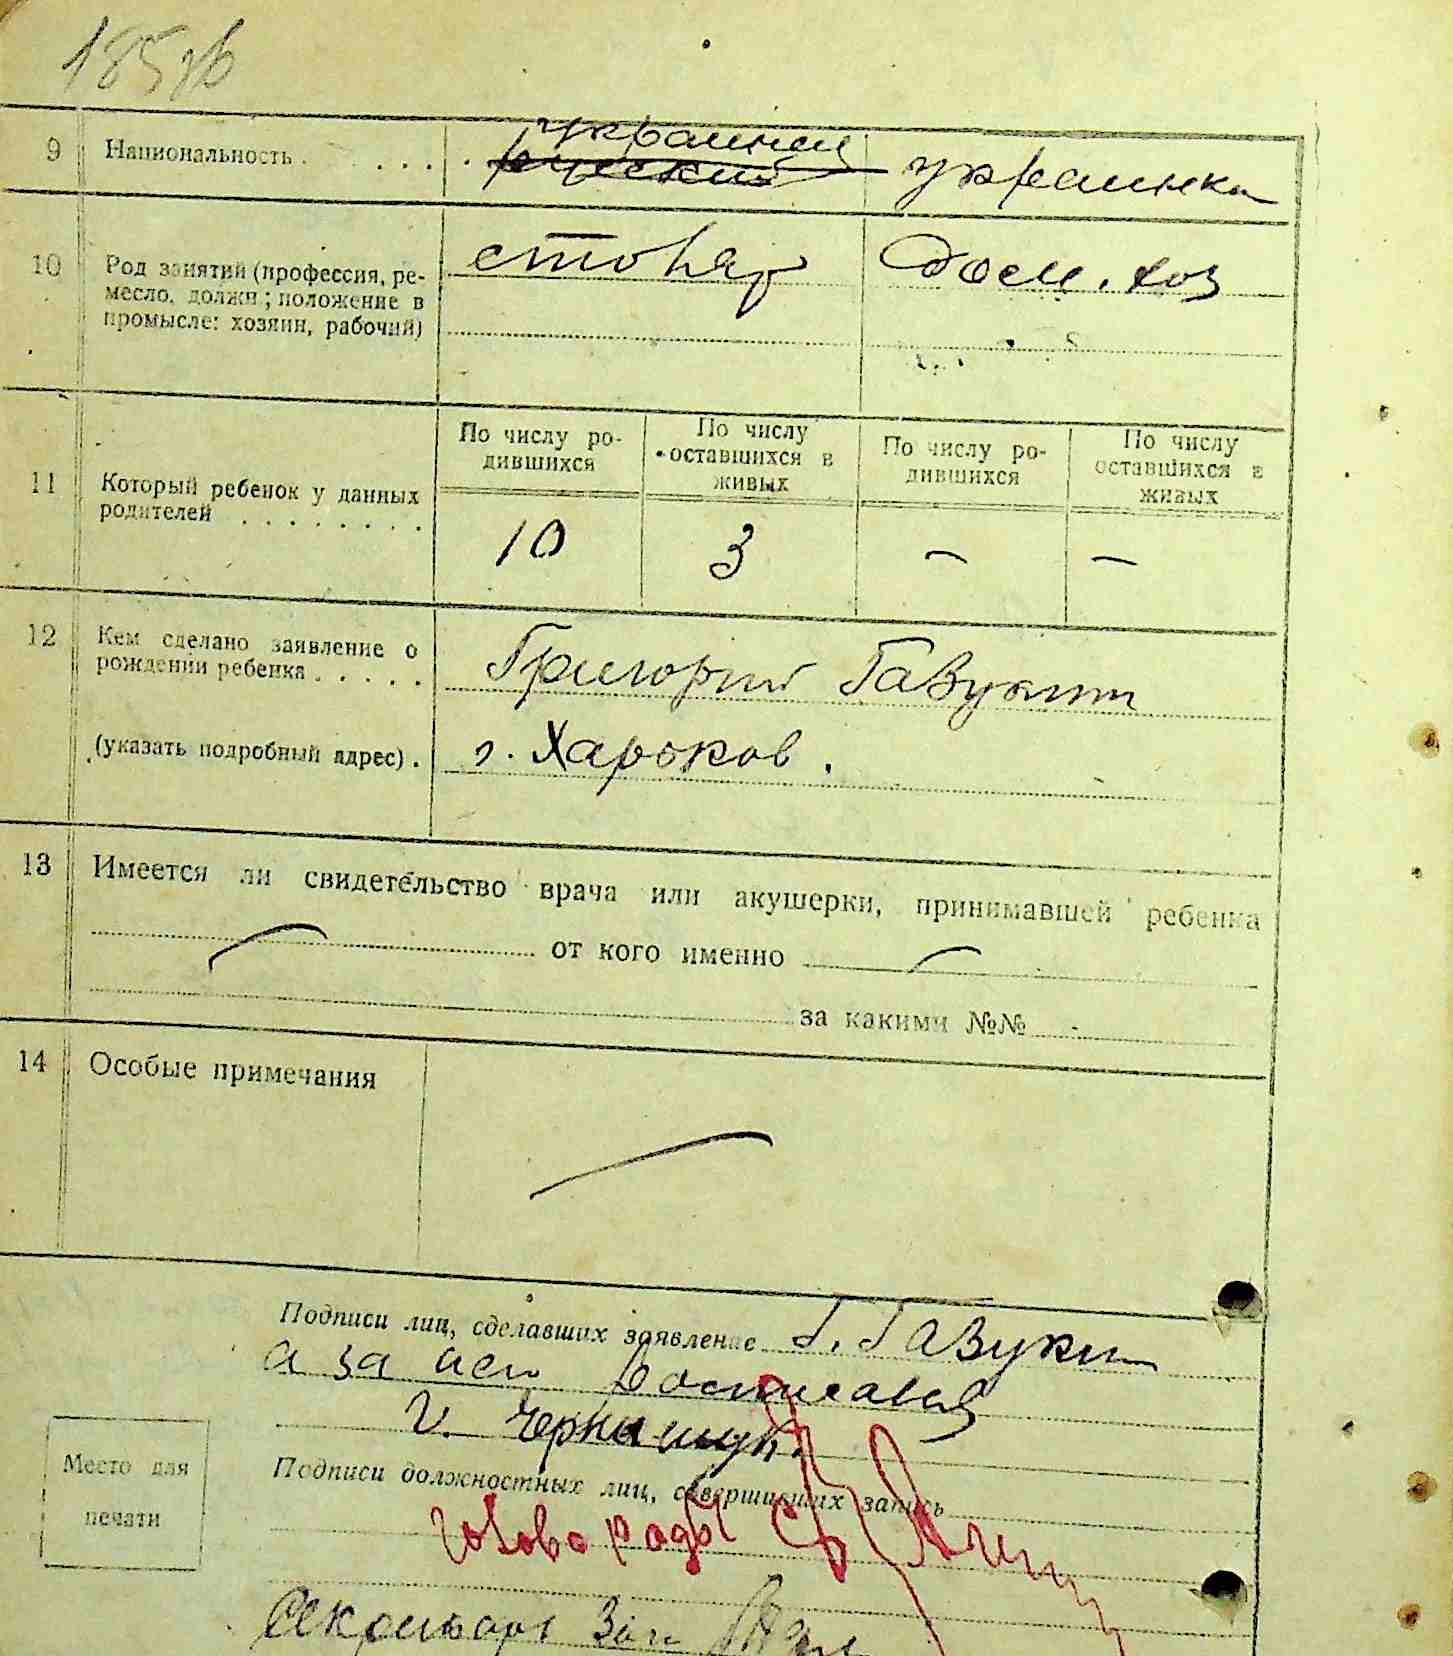 185
9 Национальность . . . . . украинец украинка
русский
10 Род занятий (профессия, ре-
месло, должн; положение в
промысле: хозяин, рабочий)
столяр дом. хоз
11 Который ребенок у данных
родителей . . . . . . . .
По числу ро-
дившихся
По числу
оставшихся в
живых
По числу ро-
дившихся
По числу
оставшихся в
живых
10 3 — —
12 Кем сделано заявление о
рождении ребенка . . . . .
Григорий
(указать подробный адрес) .
г. Харьков.
13 Имеется ли свидетельство врача или акушерки, принимавшей ребенка
— от кого именно —
за какими №№ -
14 Особые примечания
—
Подписи лиц, сделавших заявление Г.
а за
Г.
Подписи должностных лиц, совершивших запись
Место для
печати
голова ради